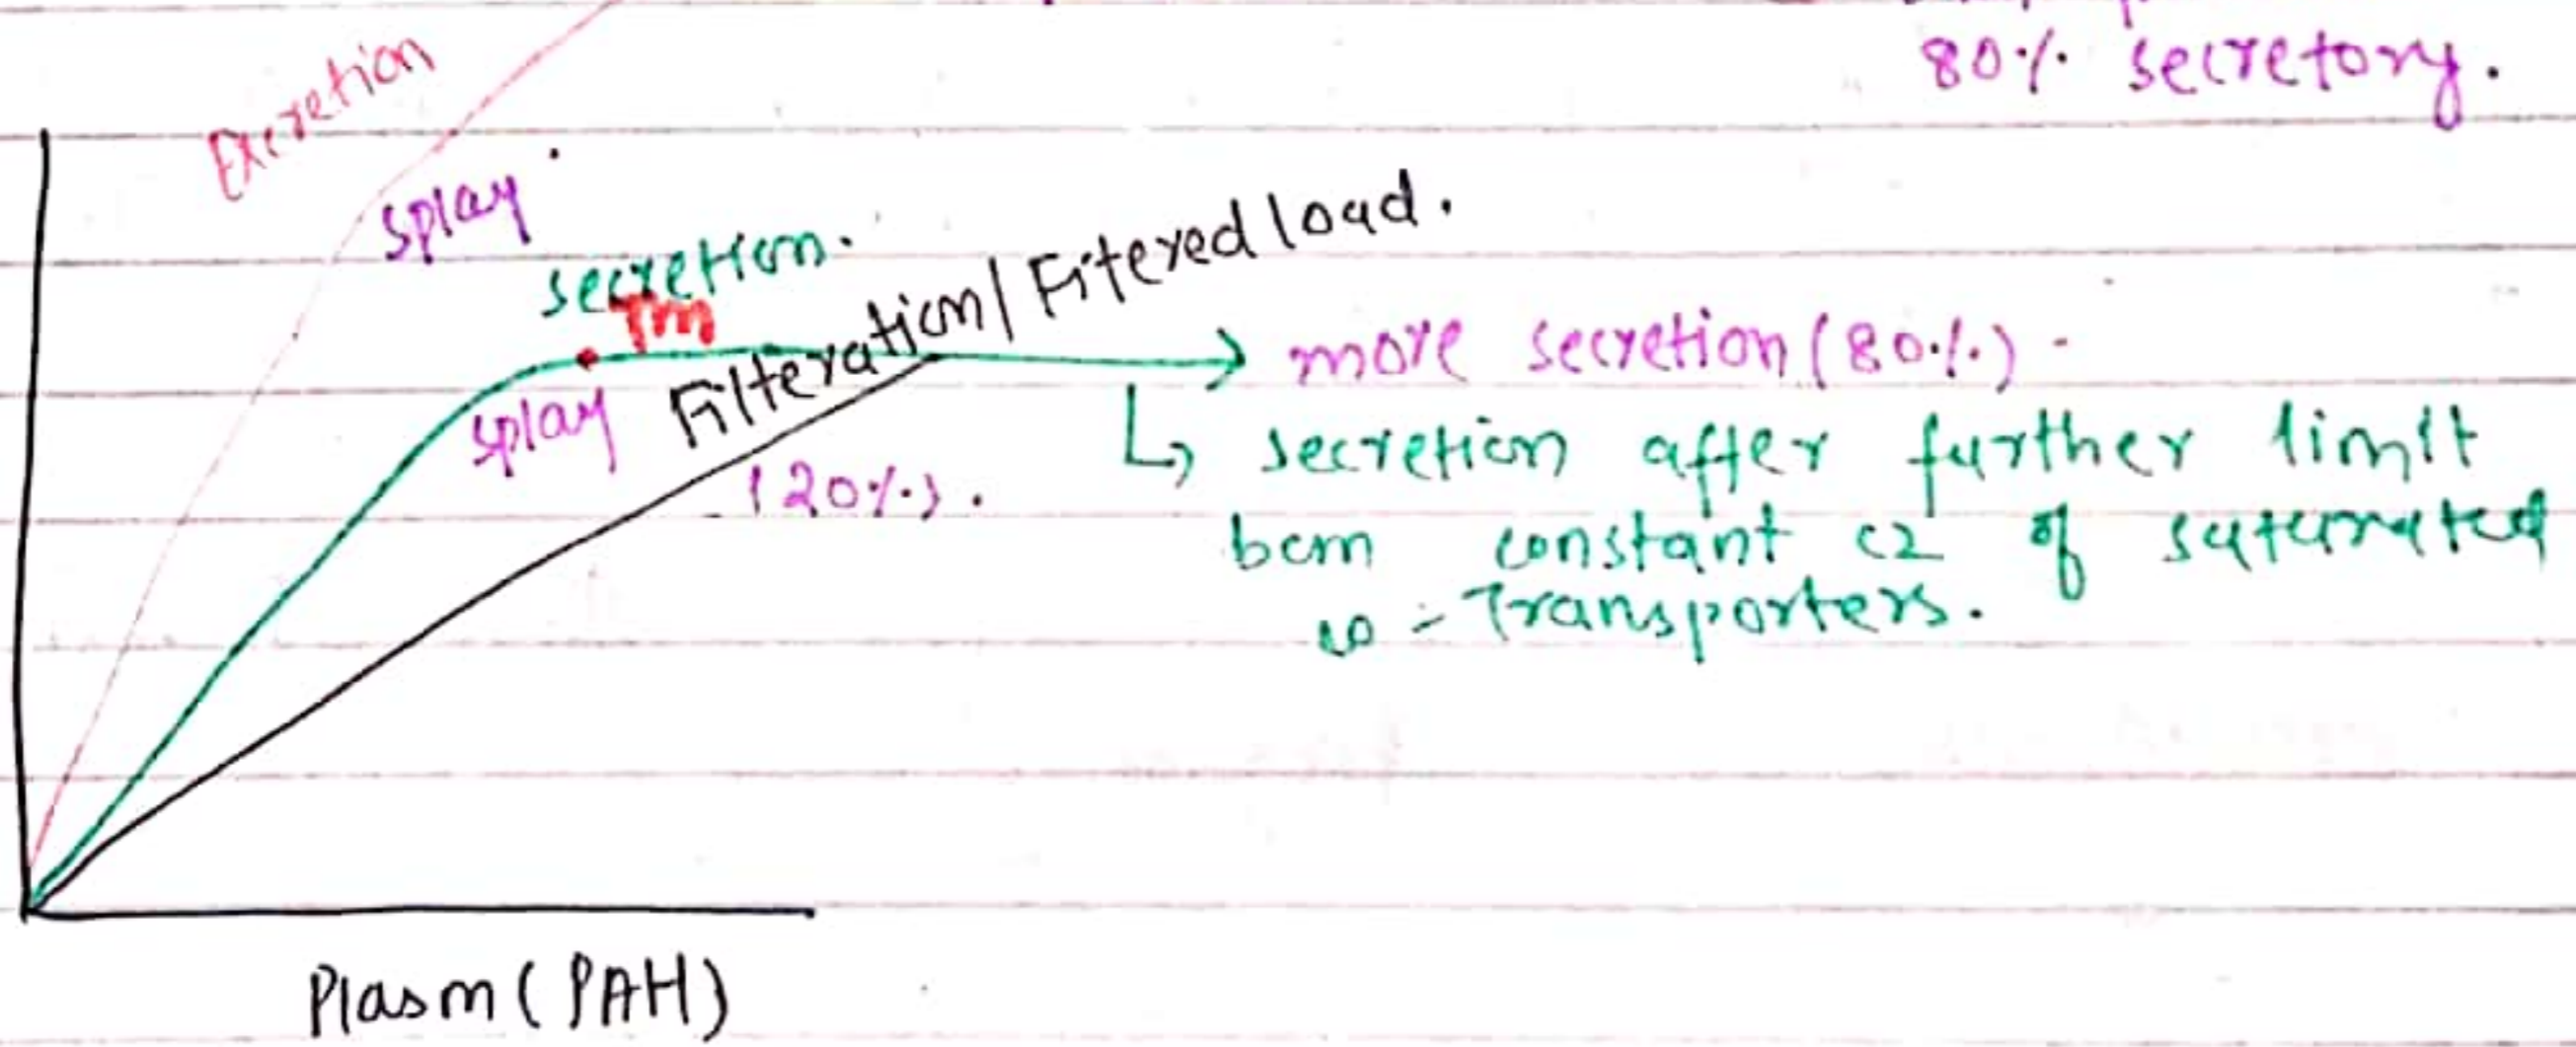 80% secretory.
Excretion
splay
secretion.
Tm
Filteration/Fitered load.
more secretion (80%) -
splay
(20%).
secretion after further limit
bcm constant cz of saturated
Transporters.
Plasm (PAH)